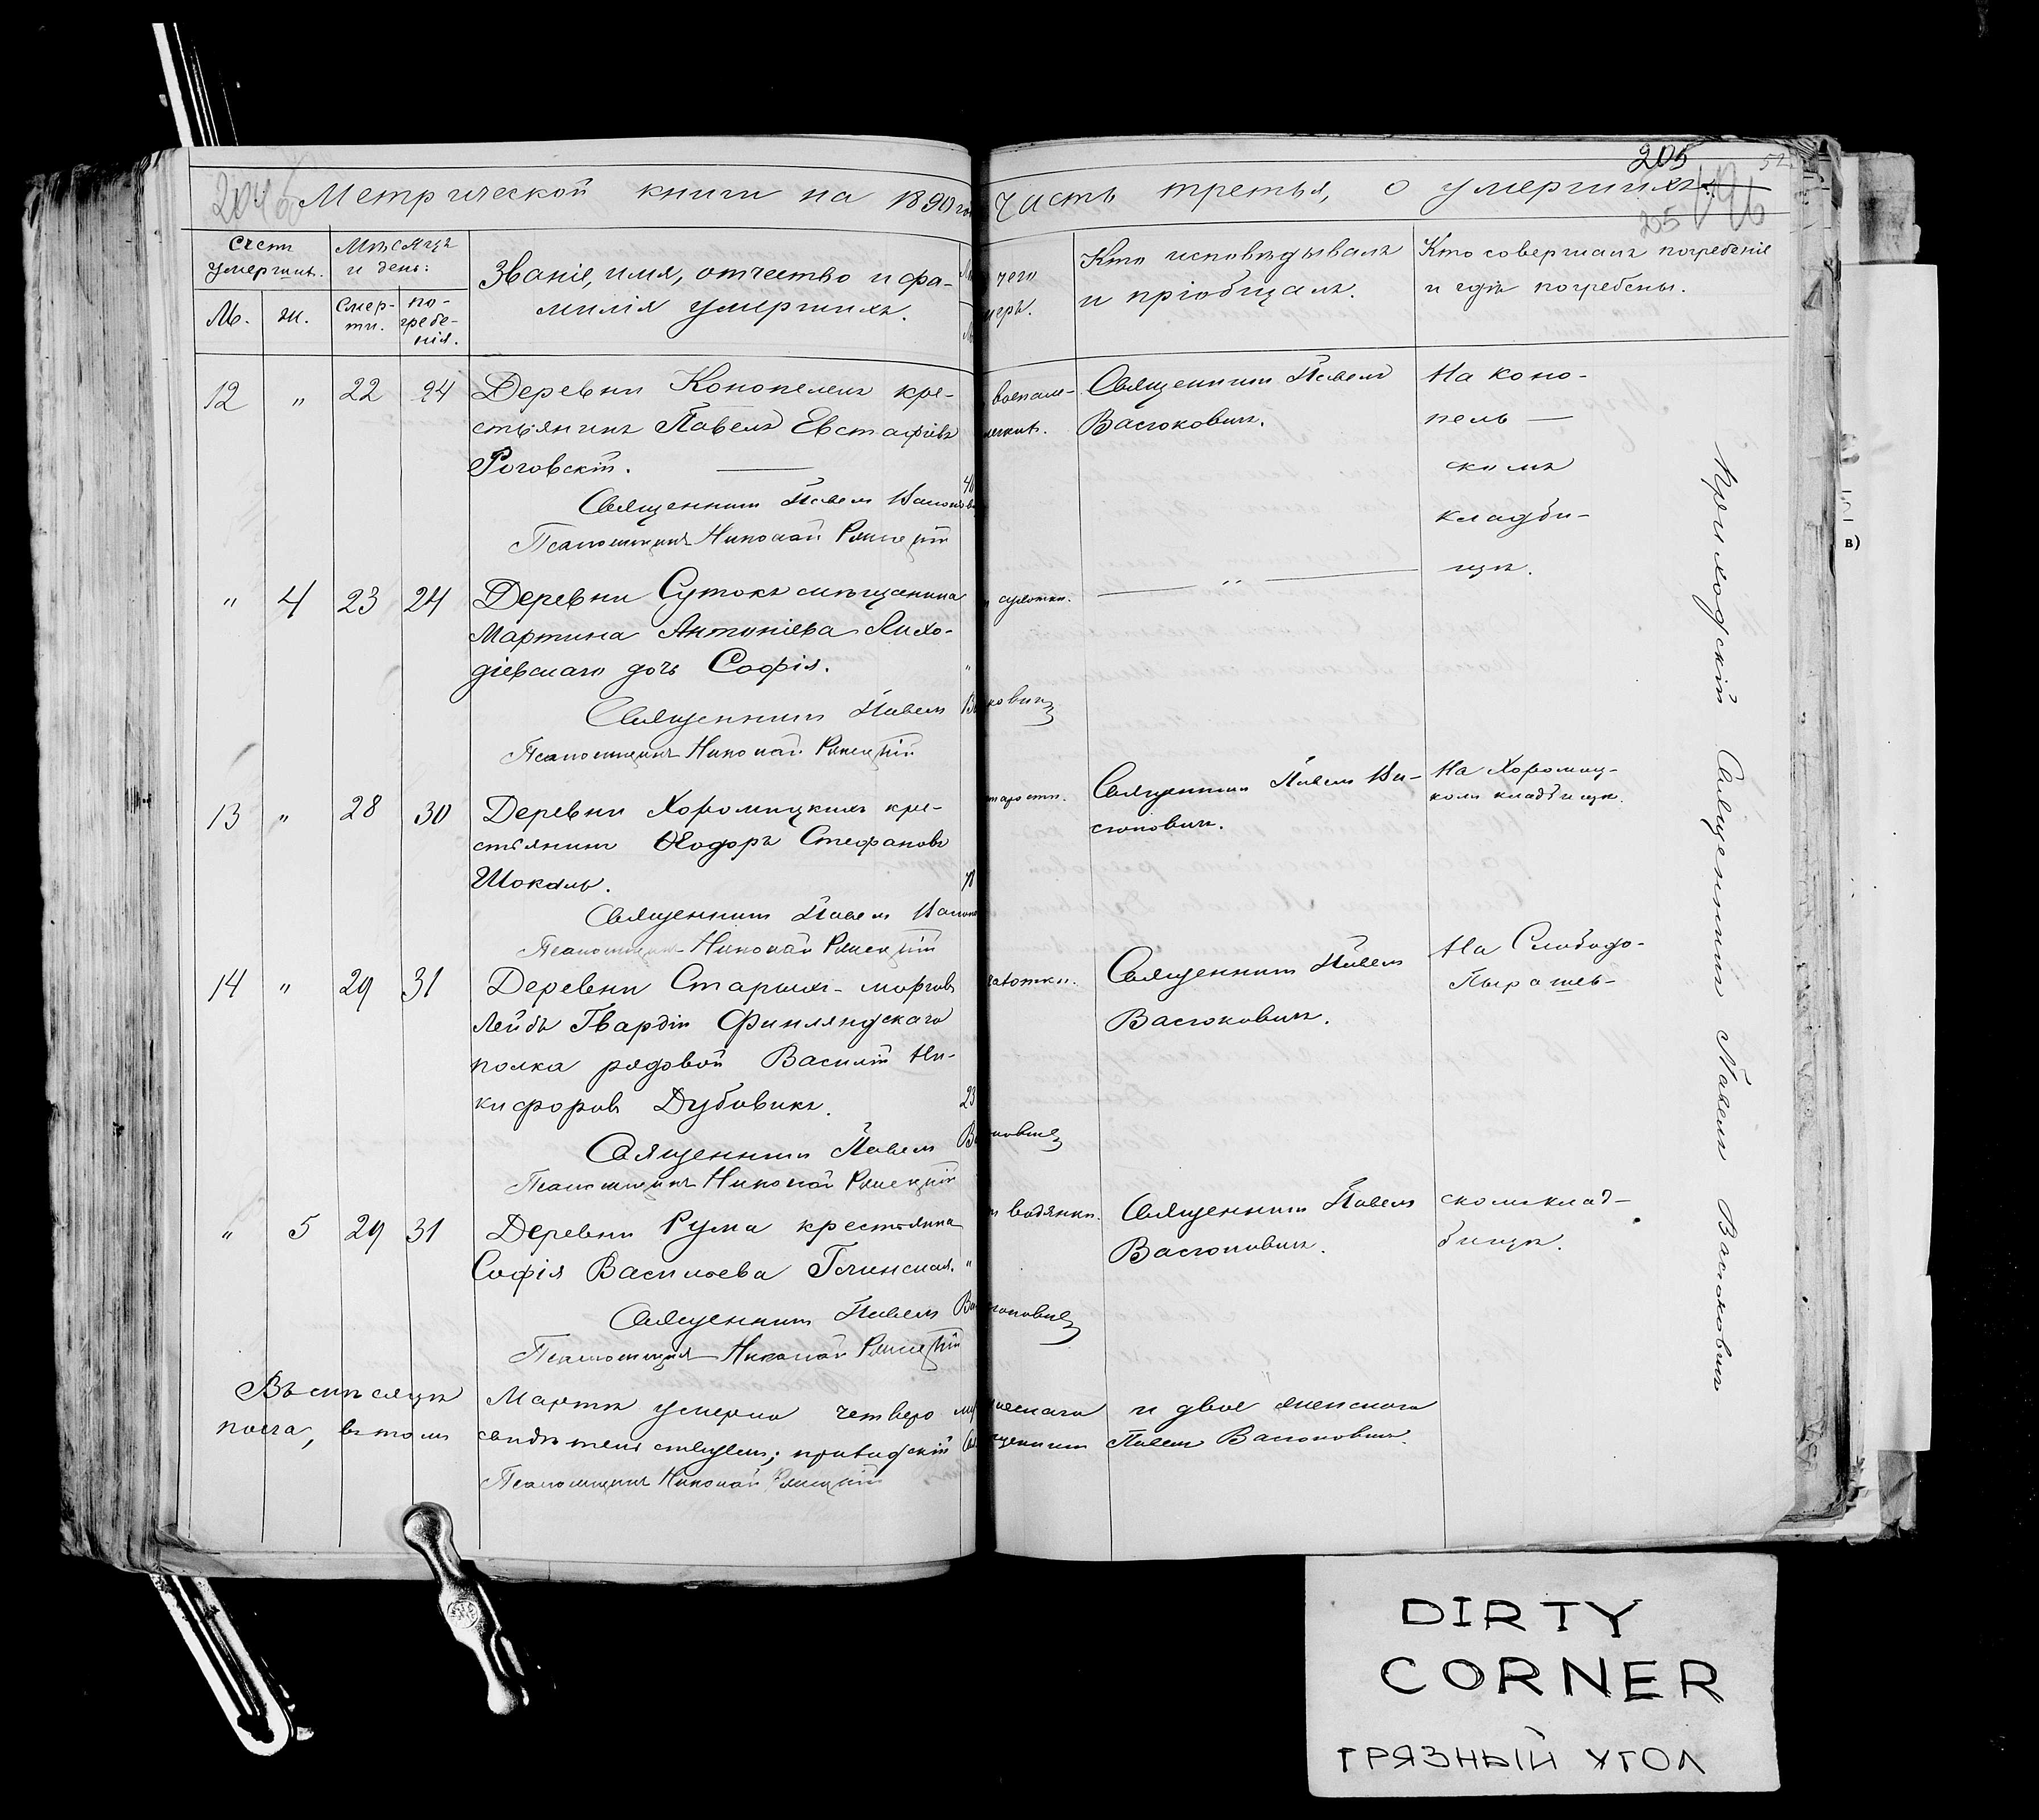 205
Метрической книги на 1890 год
часть третья, о умершихъ.
204
205
Счетъ умершихъ.
Мѣсяцъ и день:
Званіе, имя, отчество и фа-
милія умершихъ.
М.
Ж.
Смер-
ти.
по-
гребе-
нія.
чего
меръ.
Кто исповѣдывалъ
и пріобщалъ.
Кто совершалъ погребеніе
и гдѣ погребены.
12 " 22 24
Деревни Конопелекъ кре-
стьянинъ Павелъ Евстафіевъ
Роговскій.
Священникъ Павелъ
Псаломщикъ Николай
воспале-
легкихъ.
Священникъ Павелъ
Васюковичъ.
На коно-
пель —
скомъ
кладби-
щѣ.
" 4 23 24
Деревни Сутокъ мѣщанина
Мартина Антоніева Лихо-
діевскаго дочь Софія.
Священникъ Павелъ Васюковичъ
Псаломщикъ Николай
"
13 " 28 30
Деревни Хоромицкихъ кре-
стьянинъ Ѳеодоръ Стефановъ
Шокаль.
78
Священникъ Павелъ
Псаломщикъ Николай
старости.
Священникъ Павелъ Ва-
сюковичъ.
На Хоромиц-
комъ кладбищѣ.
14 " 29 31
Деревни Старыхъ-морговъ
Лейбъ Гвардіи Финляндскаго
полка рядовой Василій Ни-
кифоровъ Дубовикъ.
23
Священникъ Павелъ Васюковичъ
Псаломщикъ Николай
чахотки.
Священникъ Павелъ
Васюковичъ.
На Слободо-
Пырашев-
" 5 29 31
Деревни Рума крестьянка
Софія Васильева Гочинская. "
Священникъ Павелъ Васюковичъ
Псаломщикъ Николай
водянки.
Священникъ Павелъ
Васюковичъ.
скомъ клад-
бищѣ.
Въ мѣсяцѣ Мартѣ умерло четверо мужескаго и двое женскаго
пола, въ томъ свидѣтельствуемъ; приходскій Священникъ Павелъ Васюковичъ.
Псаломщикъ Николай
Приходскій Священникъ Павелъ Васюковичъ
в)
DIRTY
CORNER
ГРЯЗНЫЙ УГОЛ